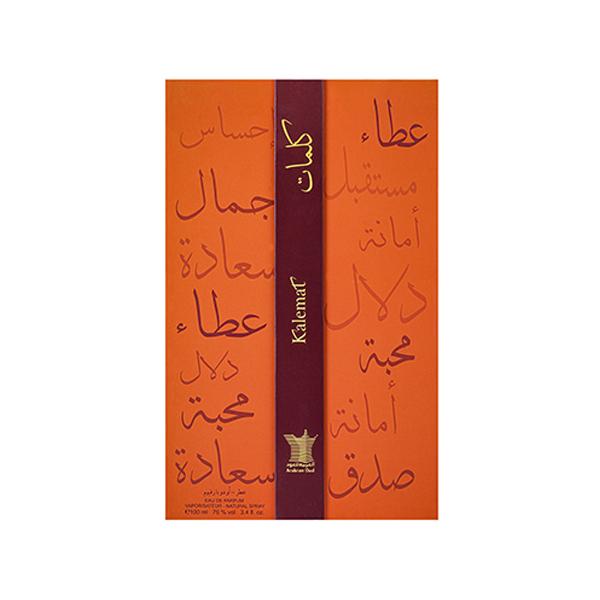 إحساس
جمال
سعادة
عطاء
دلال
محبة
سعادة
عطر - أو دو بارفيوم
EAU DE PARFUM
VAPORISATEUR - NATURAL SPRAY
℮100 ml 75 % vol 3.4 fl. oz.
كلمات
Kalemat
العربية للعود
Arabian Oud
عطاء
مستقبل
أمانة
دلال
محبة
أمانة
صدق